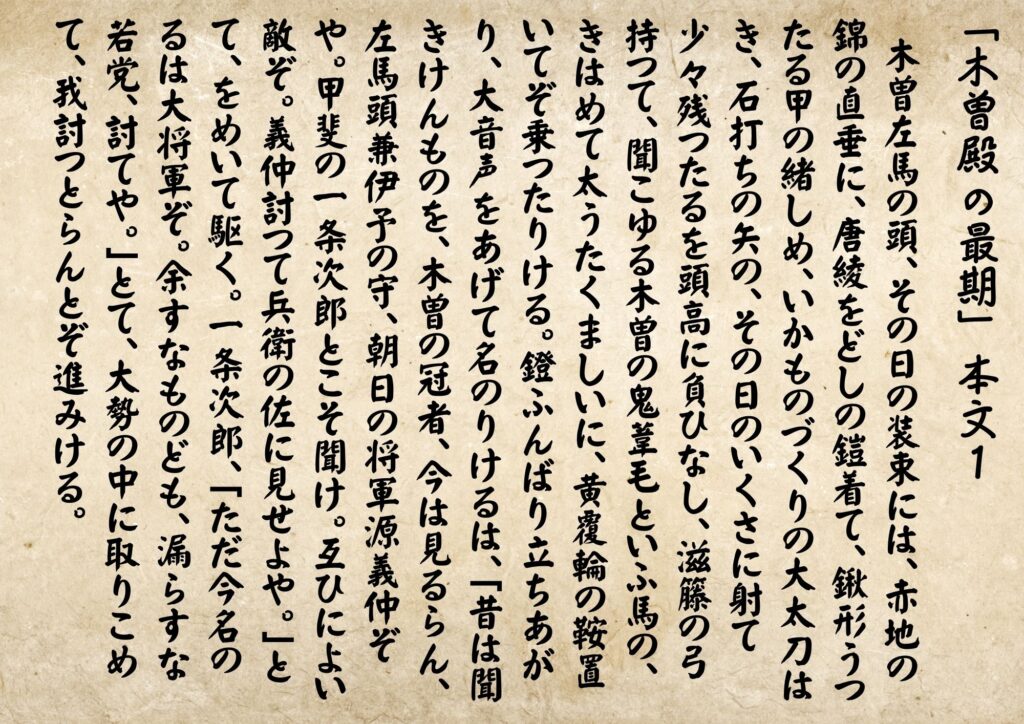 「木曽殿の最期」本文1
木曽左馬の頭、その日の装束には、赤地の
錦の直垂に、唐綾をどしの鎧着て、鍬形うつ
たる甲の緒しめ、いかものづくりの大太刀は
き、石打ちの矢の、その日のいくさに射て
少々残つたるを頭高に負ひなし、滋籐の弓
持つて、聞こゆる木曽の鬼葦毛といふ馬の、
きはめて太うたくましいに、黄覆輪の鞍置
いてぞ乗つたりける。鐙ふんばり立ちあが
り、大音声をあげて名のりけるは、「昔は聞
きけんものを、木曽の冠者、今は見るらん、
左馬頭兼伊予の守、朝日の将軍源義仲ぞ
や。甲斐の一条次郎とこそ聞け。互ひによい
敵ぞ。義仲討つて兵衛の佐に見せよや。」と
て、をめいて駆く。一条次郎、「ただ今名の
るは大将軍ぞ。余すなものども、漏らすな
若党、討てや。」とて、大勢の中に取りこめ
て、我討つとらんとぞ進みける。